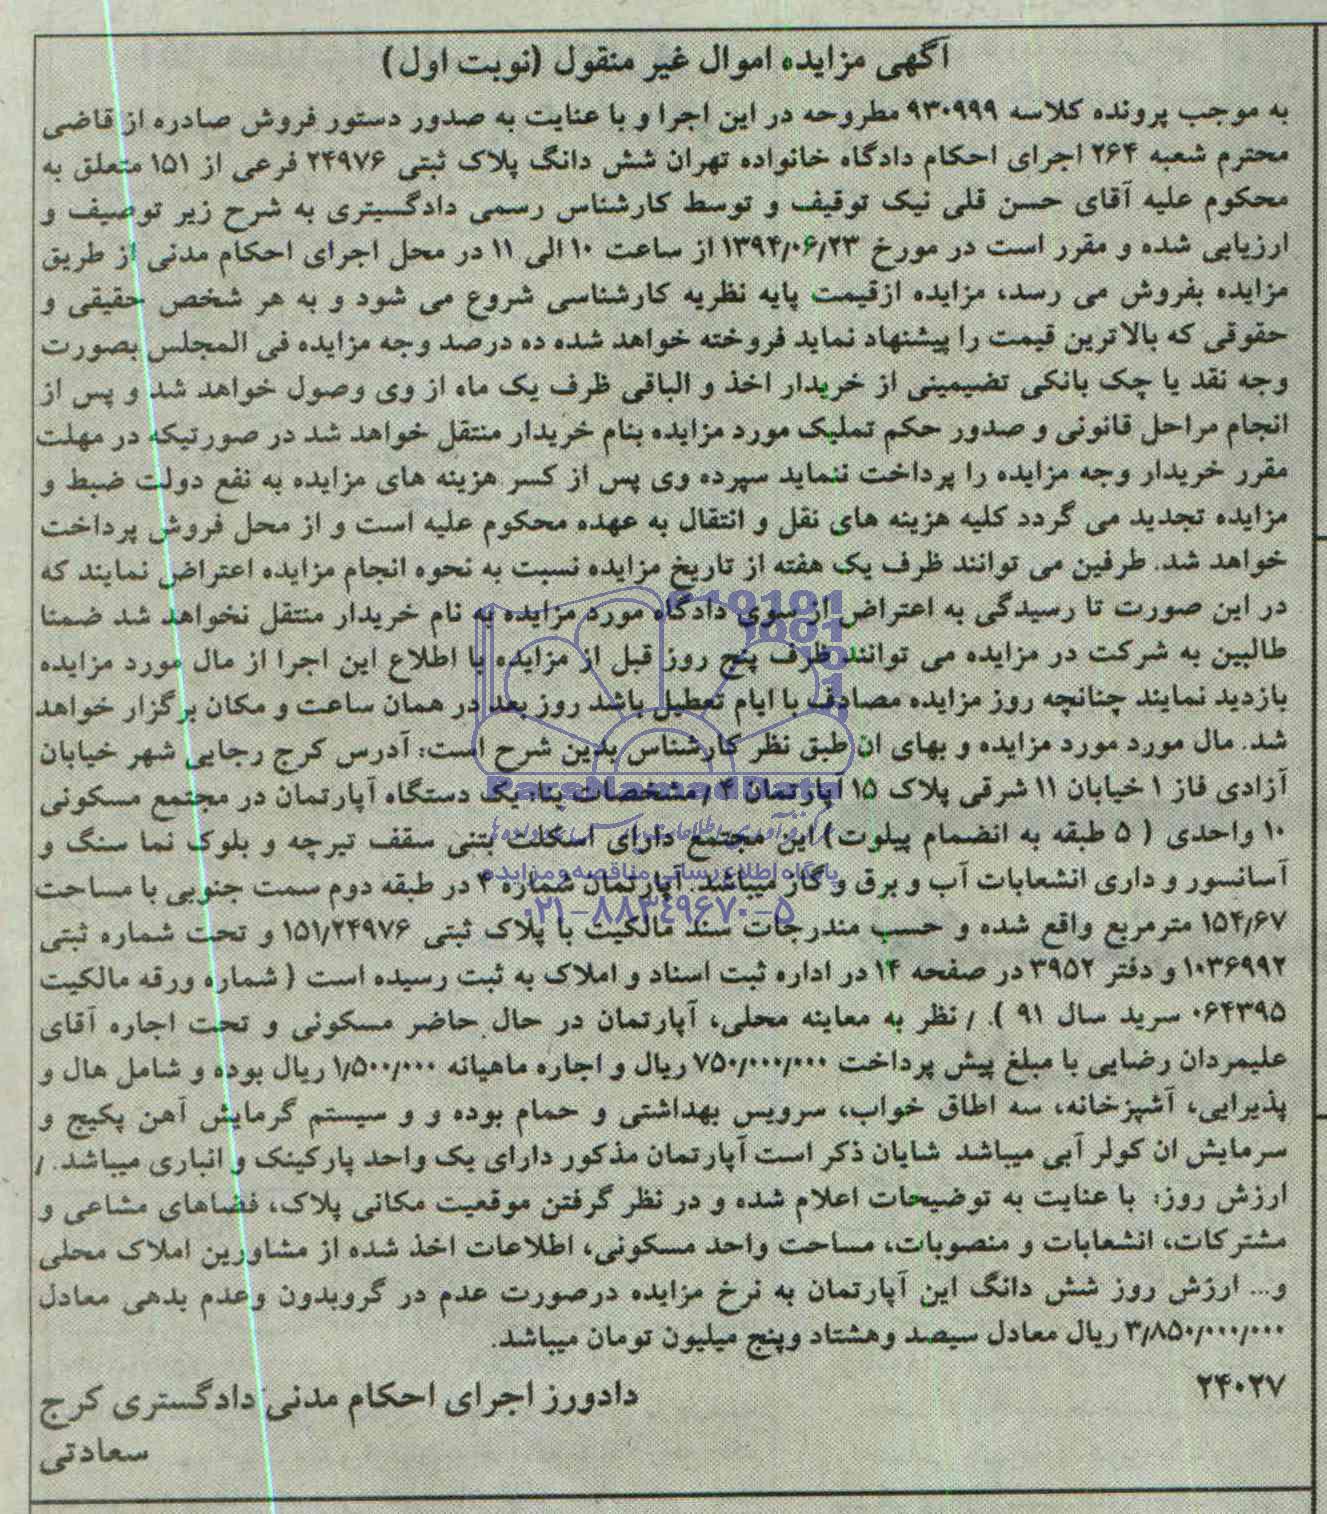 آگهی مزایده اموال غیر منقول (نوبت اول)
به موجب پرونده کلاسه ۹۳۰۹۹۹ مطروحه در این اجرا و با عنایت به صدور دستور فروش صادره از قاضی
محترم شعبه ۲۶۴ اجرای احکام دادگاه خانواده تهران شش دانگ پلاک ثبتی ۲۴۹۷۶ فرعی از ۱۵۱ متعلق به
محکوم علیه آقای حسن قلی نیک توقیف و توسط کارشناس رسمی دادگستری به شرح زیر توصیف و
ارزیابی شده و مقرر است در مورخ ۱۳۹۴/۰۶/۲۳ از ساعت ۱۰ الی ۱۱ در محل اجرای احکام مدنی از طریق
مزایده بفروش می رسد، مزایده ازقیمت پایه نظریه کارشناسی شروع می شود و به هر شخص حقیقی و
حقوقی که بالاترین قیمت را پیشنهاد نماید فروخته خواهد شده ده درصد وجه مزایده فی المجلس بصورت
وجه نقد یا چک بانکی تضیمینی از خریدار اخذ و الباقی ظرف یک ماه از وی وصول خواهد شد و پس از
انجام مراحل قانونی و صدور حکم تملیک مورد مزایده بنام خریدار منتقل خواهد شد در صورتیکه در مهلت
مقرر خریدار وجه مزایده را پرداخت ننماید سپرده وی پس از کسر هزینه های مزایده به نفع دولت ضبط و
مزایده تجدید می گردد کلیه هزینه های نقل و انتقال به عهده محکوم علیه است و از محل فروش پرداخت
خواهد شد. طرفین می توانند ظرف یک هفته از تاریخ مزایده نسبت به نحوه انجام مزایده اعتراض نمایند که
در این صورت تا رسیدگی به اعتراض از سوی دادگاه مورد مزایده به نام خریدار منتقل نخواهد شد ضمنا
طالبین به شرکت در مزایده می توانند ظرف پنج روز قبل از مزایده با اطلاع این اجرا از مال مورد مزایده
بازدید نمایند چنانچه روز مزایده مصادف با ایام تعطیل باشد روز بعد در همان ساعت و مکان برگزار خواهد
شد. مال مورد مورد مزایده و بهای ان طبق نظر کارشناس بدین شرح است: آدرس کرج رجایی شهر خیابان
آزادی فاز ۱ خیابان ۱۱ شرقی پلاک ۱۵ آپارتمان ۴ / مشخصات بنا: یک دستگاه آپارتمان در مجتمع مسکونی
۱۰ واحدی ( ۵ طبقه به انضمام پیلوت) این مجتمع دارای اسکلت بتنی سقف تیرچه و بلوک نما سنگ و
آسانسور و داری انشعابات آب و برق و گاز میباشد. آپارتمان شماره ۴ در طبقه دوم سمت جنوبی با مساحت
۱۵۴/۶۷ مترمربع واقع شده و حسب مندرجات سند مالکیت با پلاک ثبتی ۱۵۱/۲۴۹۷۶ و تحت شماره ثبتی
۱۰۳۶۹۹۲ و دفتر ۳۹۵۲ در صفحه ۱۴ در اداره ثبت اسناد و املاک به ثبت رسیده است ( شماره ورقه مالکیت
۰۶۴۳۹۵ سرید سال ۹۱ ). / نظر به معاینه محلی، آپارتمان در حال حاضر مسکونی و تحت اجاره آقای
علیمردان رضایی با مبلغ پیش پرداخت ۷۵۰/۰۰۰/۰۰۰ ریال و اجاره ماهیانه ۱/۵۰۰/۰۰۰ ریال بوده و شامل هال و
پذیرایی، آشپزخانه، سه اطاق خواب، سرویس بهداشتی و حمام بوده و و سیستم گرمایش آهن پکیج و
سرمایش ان کولر آبی میباشد شایان ذکر است آپارتمان مذکور دارای یک واحد پارکینک و انباری میباشد. /
ارزش روز: با عنایت به توضیحات اعلام شده و در نظر گرفتن موقعیت مکانی پلاک، فضاهای مشاعی و
مشترکات، انشعابات و منصوبات، مساحت واحد مسکونی، اطلاعات اخذ شده از مشاورین املاک محلی
و... ارزش روز شش دانگ این آپارتمان به نرخ مزایده درصورت عدم در گروبدون وعدم بدهی معادل
۳/۸۵۰/۰۰۰/۰۰۰ ریال معادل سیصد وهشتاد وپنج میلیون تومان میباشد.
۲۴۰۲۷
دادورز اجرای احکام مدنی دادگستری کرج
سعادتی
ParsNamadData
پایگاه اطلاع رسانی مناقصه و مزایده
۰۲۱-۸۸۳۴۹۶۷۰-۵